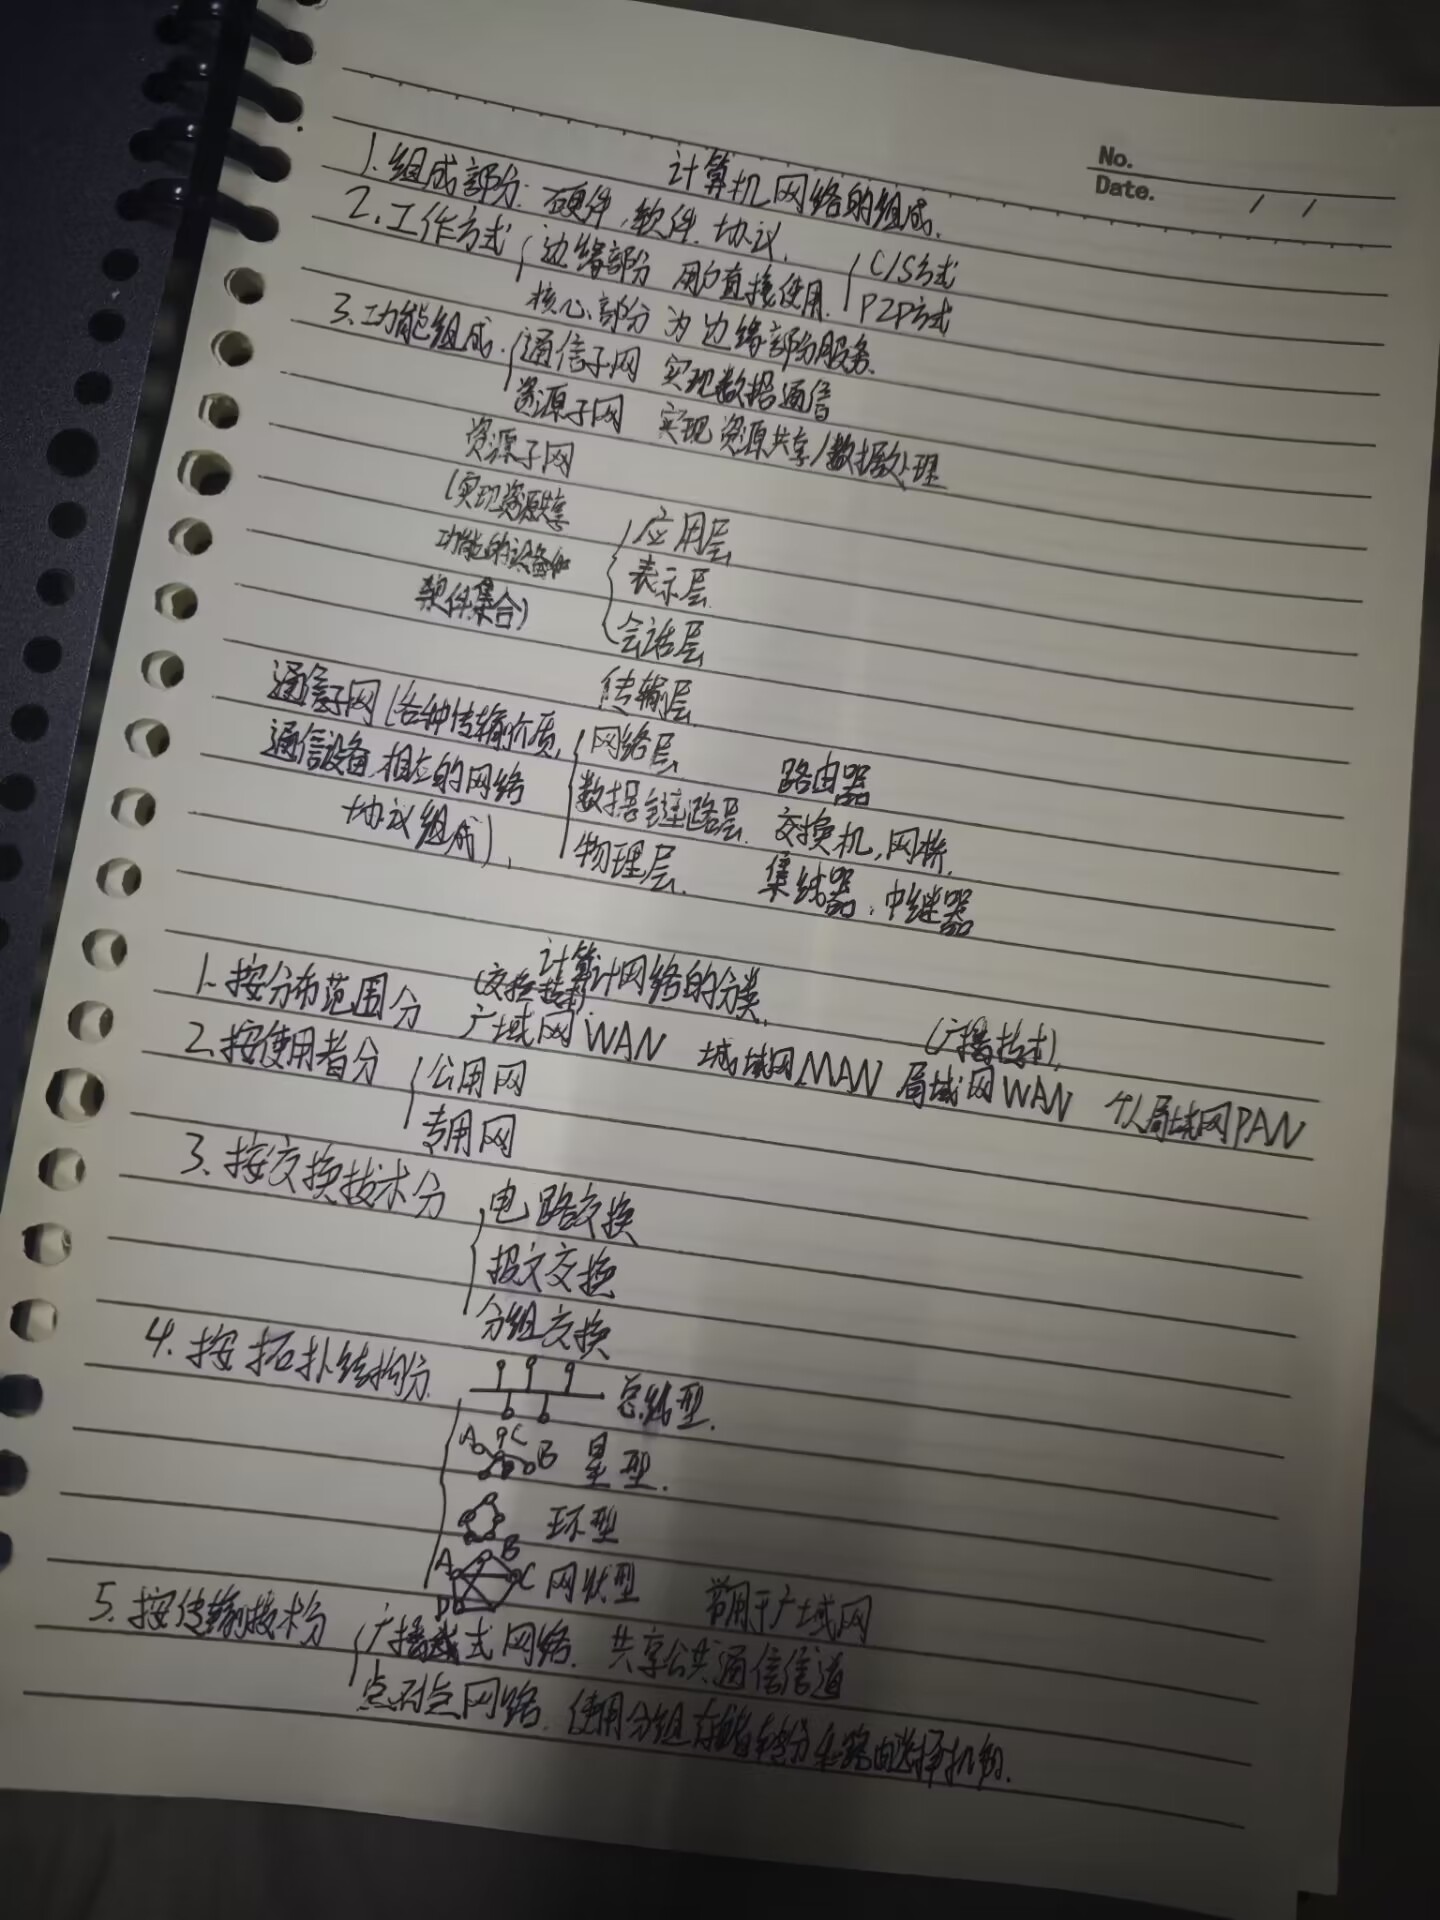 No.
Date. / /
计算机网络的组成.
1. 组成部分: 硬件, 软件. 协议.
2. 工作方式 边缘部分 用户直接使用. C/S方式
P2P方式
核心部分 为边缘部分服务.
3. 功能组成. 通信子网 实现数据通信
资源子网 实现资源共享/数据处理
资源子网
(实现资源共享
功能的设备和
软件集合)
应用层
表示层.
会话层
传输层
通信子网(各种传输介质, 网络层 路由器
通信设备, 相应的网络 数据链路层. 交换机, 网桥.
协议组成). 物理层. 集线器、中继器
计算计网络的分类.
(交换技术) (广播技术).
1. 按分布范围分 广域网WAN 城域网MAN 局域网WAN 个人局域网PAN
2. 按使用者分 公用网
专用网
3. 按交换技术分 电路交换
报文交换
分组交换
4. 按拓扑结构分. 总线型.
A C B 星型.
环型
A B C D 网状型 常用于广域网
5. 按传输技术分 广播式网络. 共享公共通信信道
点对点网络. 使用分组存储转发和路由选择机制.